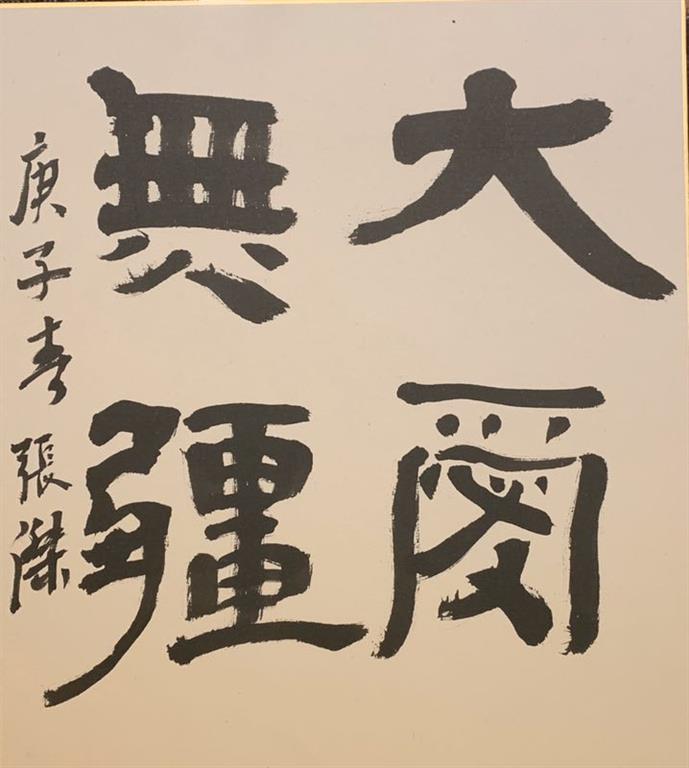 大愛
無疆
庚子春張傑